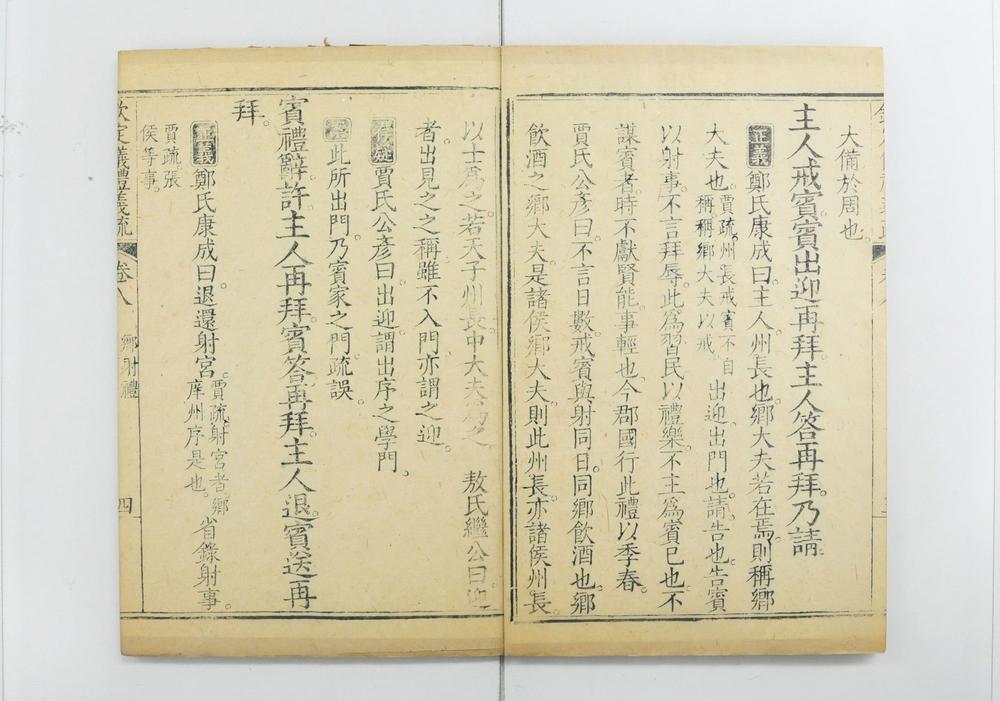 大備於周也。
主人戒賓賓出迎再拜主人答再拜乃請
正義鄭氏康成曰主人州長也鄉大夫若在焉則稱鄉
大夫也。賈疏州長戒賓不自稱稱鄉大夫以戒。出迎出門也。請告也告賓
以射事不言拜辱此為習民以禮樂不主為賓已也。不
謀賓者時不獻賢能事輕也今郡國行此禮以季春。
賈氏公彥曰不言日數戒賓與射同日。同鄉飲酒也。鄉
飲酒之鄉大夫是諸侯鄉大夫則此州長亦諸侯州長
以士為之若天子州長中大夫為之 敖氏繼公曰迎
者出見之之稱雖不入門亦謂之迎。
存疑賈氏公彥曰出迎謂出序之學門。
案此所出門乃賓家之門疏誤
賓禮辭許主人再拜賓答再拜主人退賓送再
拜。
正義鄭氏康成曰退還射宮。賈疏射宮者鄉庠州序是也。省錄射事。
賈疏張侯等事。
欽定儀禮義疏 卷八 鄉射禮 四